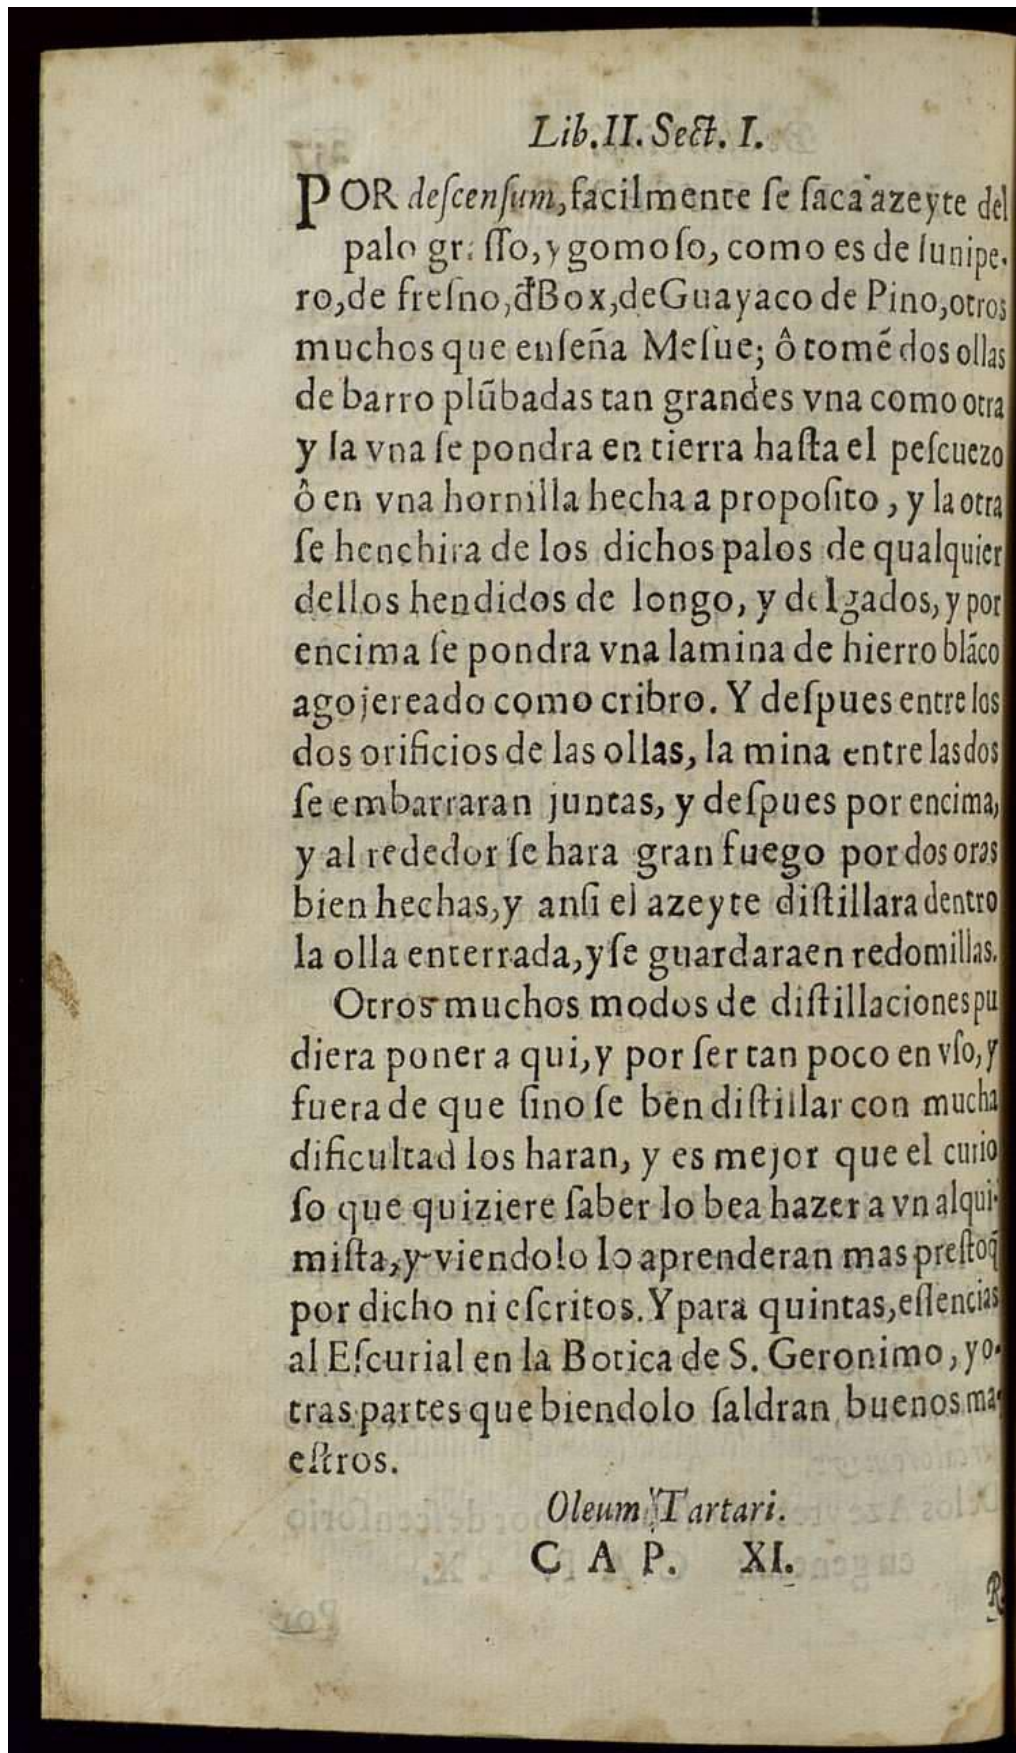 Lib.II. Sect. I.
POR descensum, facilmente ſe ſaca azeyte del
palo gr ſſo, y gomoſo, como es de Iunipe-
ro,de freſno,đBox,deGuayaco de Pino,otros
muchos que enſeña Meſue; ô tomē dos ollas
de barro plūbadas tan grandes vna como otra
y la vna ſe pondra en tierra haſta el peſcuezo
ô en vna hornilla hecha a propoſito, y la otra
ſe henchira de los dichos palos de qualquier
dellos hendidos de longo, y delgados, y por
encima ſe pondra vna lamina de hierro blāco
agojereado como cribro. Y deſpues entre los
dos orificios de las ollas, la mina entre las dos
ſe embarraran juntas, y deſpues por encima,
y al rededor ſe hara gran fuego por dos oras
bien hechas, y anſi el azeyte diſtillara dentro
la olla enterrada, y ſe guardaraen redomillas.
Otros muchos modos de diſtillaciones pu
diera poner a qui, y por ſer tan poco en vſo, y
fuera de que ſino ſe bēn diſtillar con mucha
dificultad los haran, y es mejor que el curio
ſo que quiziere ſaber lo bea hazer a vn alqui-
miſta, y viendolo lo aprenderan mas preſto q̄
por dicho ni eſcritos. Y para quintas, eſſencias
al Eſcurial en la Botica de S. Geronimo, y o-
tras partes que biendolo ſaldran buenos ma-
eſtros.
Oleum Tartari.
C A P. XI.
R